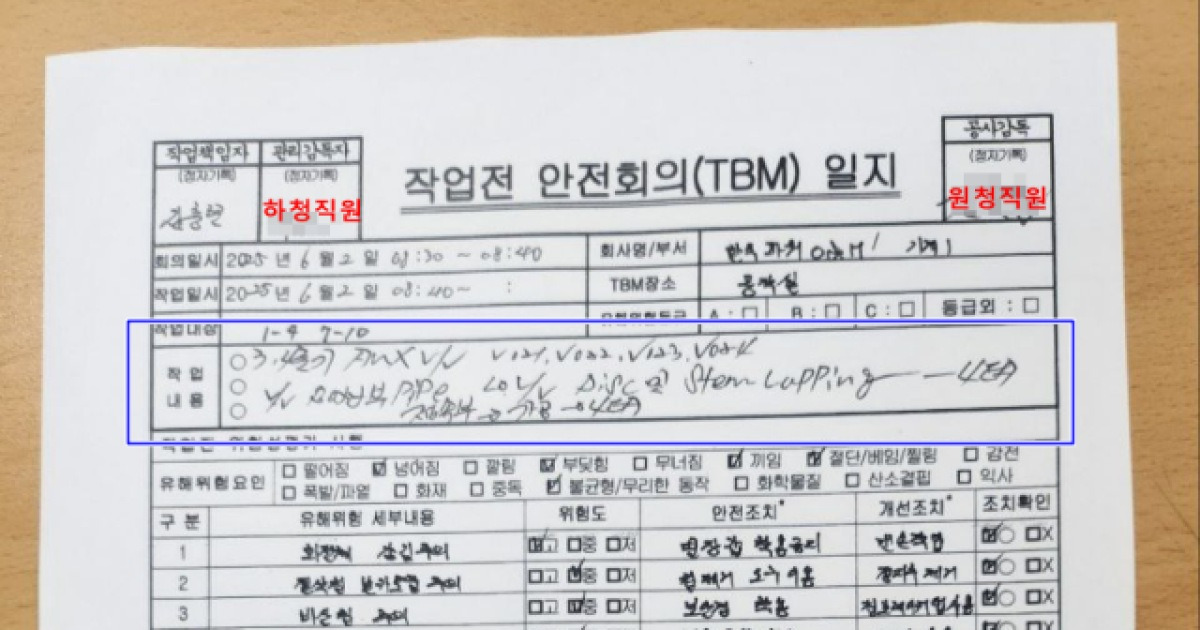 작업책임자 관리감독자
(정자기록) (정자기록)
김충현 하청직원
작업전 안전회의(TBM) 일지
공사감독
(정자기록)
원청직원
회의일시 2025년 6월 2일 08:30 ~ 08:40 회사명/부서 기계1
작업일시 2025년 6월 2일 08:40~ : TBM장소 공작실
유해위험등급 A : □ B : □ C : □ 등급외 : □
작업대상 1-4 7-10
작업내용 ○ 3.4호기 V/V V021, V022, V023, V024
○ V/V PiPe V/V Disc 및 Stem Lapping - 4EA
○ 가공 4EA
작업전 위험성평가 시행
유해위험요인 □ 떨어짐 ☑ 넘어짐 □ 깔림 ☑ 부딪힘 □ 무너짐 ☑ 끼임 ☑ 절단/베임/찔림 □ 감전
□ 폭발/파열 □ 화재 □ 중독 ☑ 불균형/무리한 동작 □ 화학물질 □ 산소결핍 □ 익사
구 분 유해위험 세부내용 위험도 안전조치* 개선조치* 조치확인
1 회전체 감김 주의 ☑고 □중 □저 면장갑 착용금지 맨손작업 ☑○ □X
2 주의 □고 ☑중 □저 칩제거 도구 사용 제거 ☑○ □X
3 비산칩 주의 □고 ☑중 □저 보안경 착용 ☑○ □X